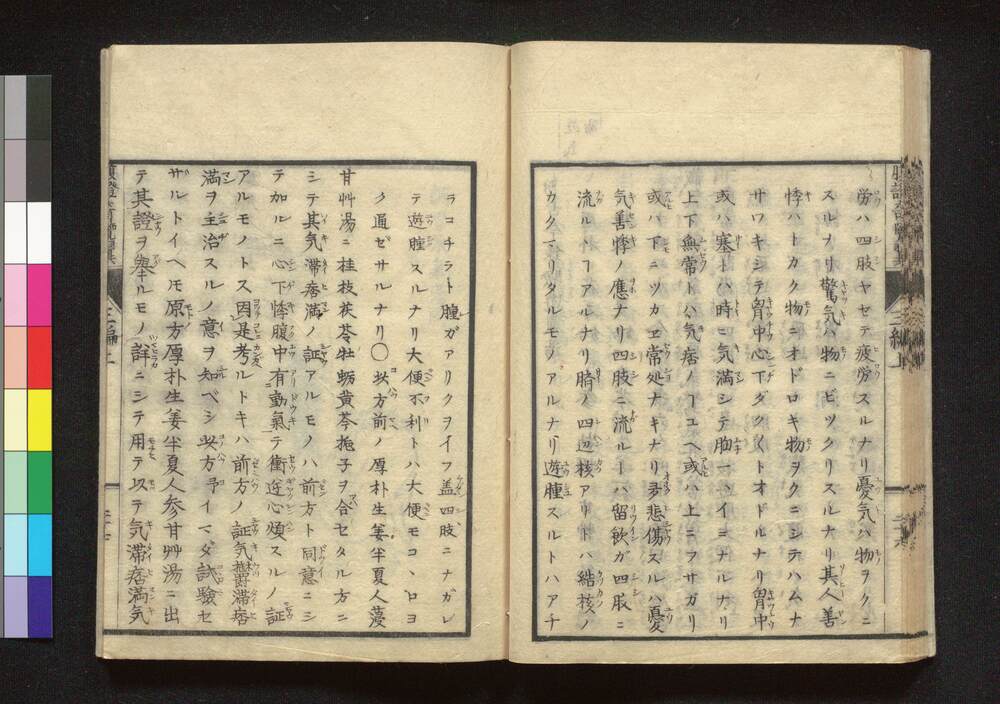 労ハ四肢ヤセテ疲労スルナリ憂気ハ物ヲクニ
スルナリ驚気ハ物ニビックリスルナリ其人善
悸ハトカク物ニオドロキ物ヲクニシテハムナ
サワギシテ胷中心下ダク〱トオドルナリ胷中
或ハ塞トハ時ニ気満シテ胸一ハイニナルナリ
上下無常トハ気痞ノヿユヘ或ハ上ニフサガリ
或ハ下ニツカヱ常処ナキナリ多悲傷スルハ憂
気善悸ノ應ナリ四肢ニ流ルヿハ留飲ガ四肢ニ
流ルヽヿアルナリ時ノ四辺核アリトハ結核ノ
カタマリタルモノアルナリ遊腫スルトハアチ
ラコチラト腫ガアリクヲイフ盖四肢ニナガレ
テ遊腫スルナリ大便不利トハ大便モコヽロヨ
ク通ゼサルナリ〇此方前ノ厚朴生姜半夏人蔆
甘艸湯ニ桂枝茯苓牡蛎黄芩梔子ヲ合セタル方ニ
シテ其気滞痞満ノ証アルモノハ前方ト同意ニシ
テ加ルニ心下悸腹中有動氣テ衝逆心煩スルノ証
アルモノトス因是考ルトキハ前方ノ証気欝滞痞
満ヲ主治スルノ意ヲ知ベシ此方予イマダ試驗セ
ザルトイヘモ原方厚朴生姜半夏人参甘艸湯ニ出
テ其證ヲ舉ルモノ詳ニシテ用テ以テ気滞痞満気